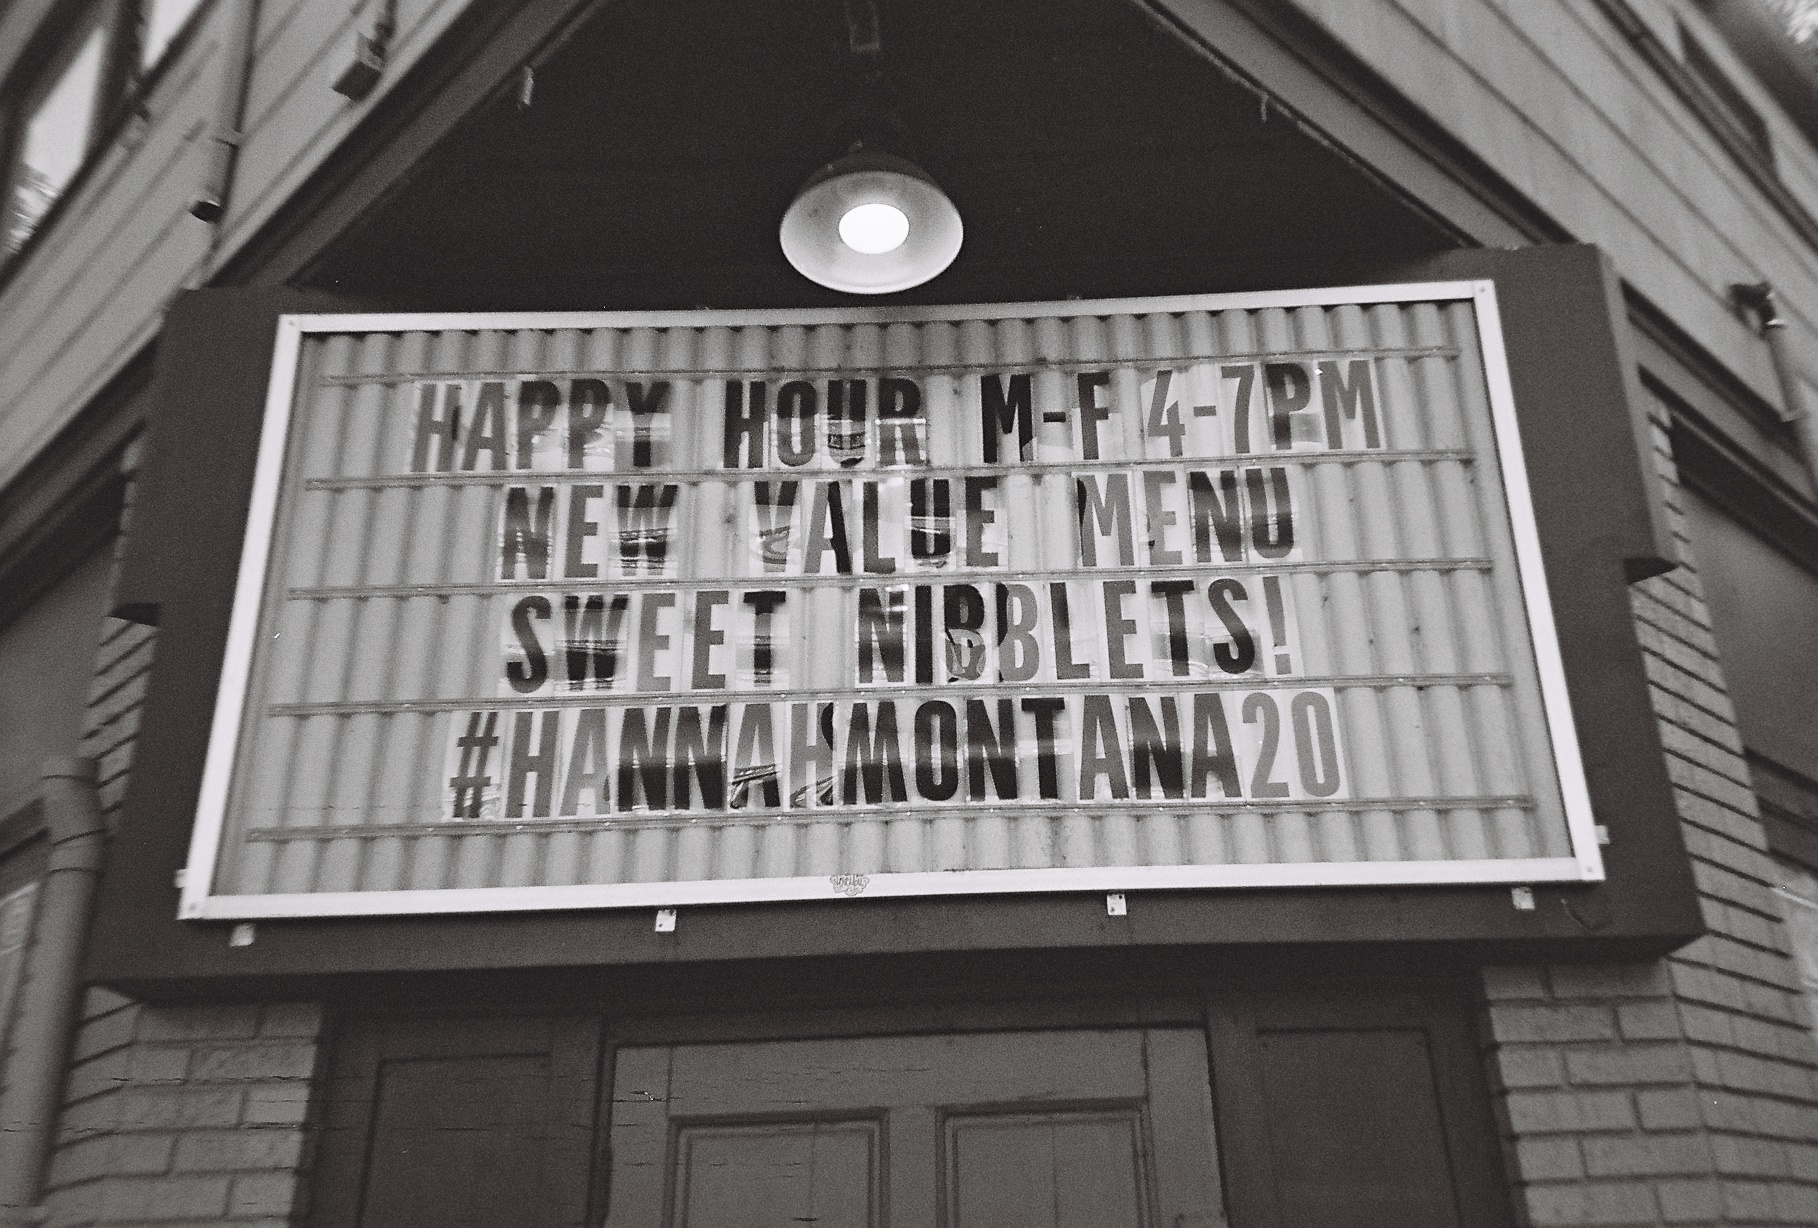 HAPPY HOUR M-F 4-7PM
NEW VALUE MENU
SWEET NIBBLETS!
#HANNAHMONTANA20